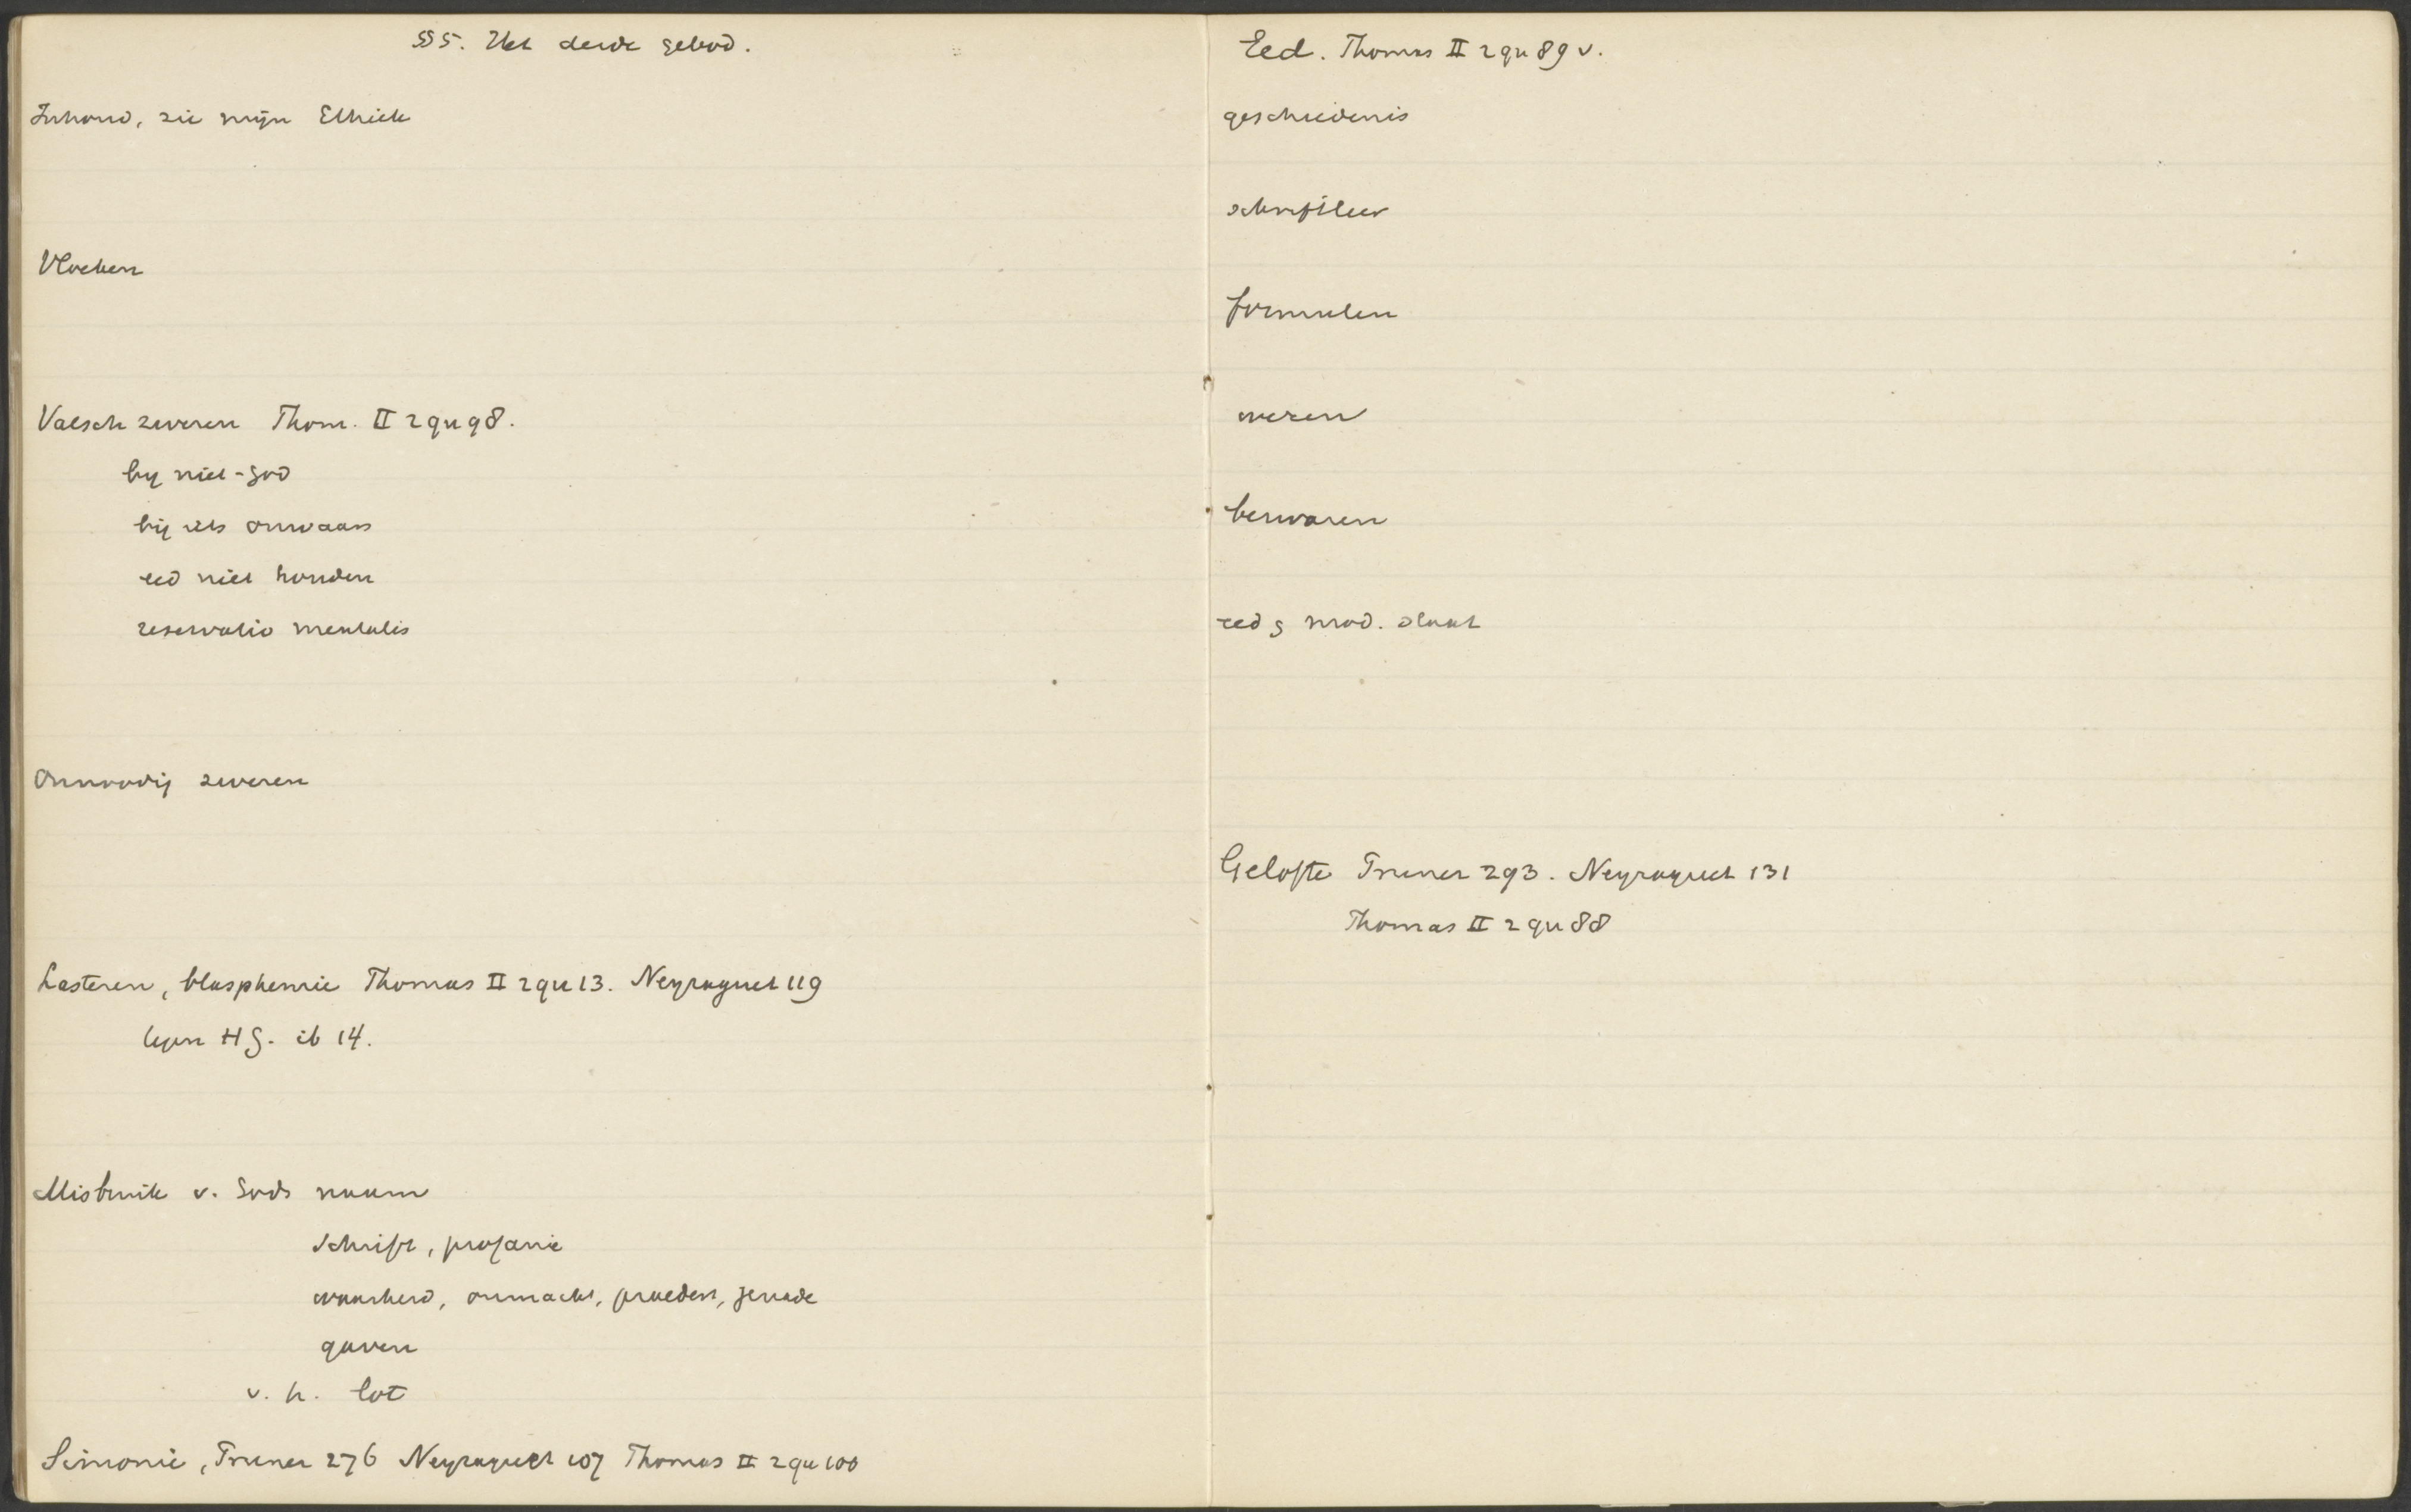 §§ 5. Het derde gebod.
Inhoud, zie mijn Ethiek
Vloeken
Valsch zweren Thom. II 2 qu 98.
bij niet-God
bij iets onwaars
eed niet houden
reservatio mentalis
Onnoodig zweren
Lasteren, blasphemie Thomas II 2 qu 13. Neyraguet 119
tegen HG. ib 14.
Misbruik v. Gods naam
schrift, profanie
waarheid, onmacht, praedest, genade
gaven
v. h. lot
Simonie, Pruner 276 Neyraguet 107 Thomas II 2 qu 100
Eed. Thomas II 2 qu 89 v.
geschiedenis
schriftleer
formulen
wezen
bezwaren
eed & mod. staat
Gelofte Pruner 293. Neyraguet 131
Thomas II 2 qu 88